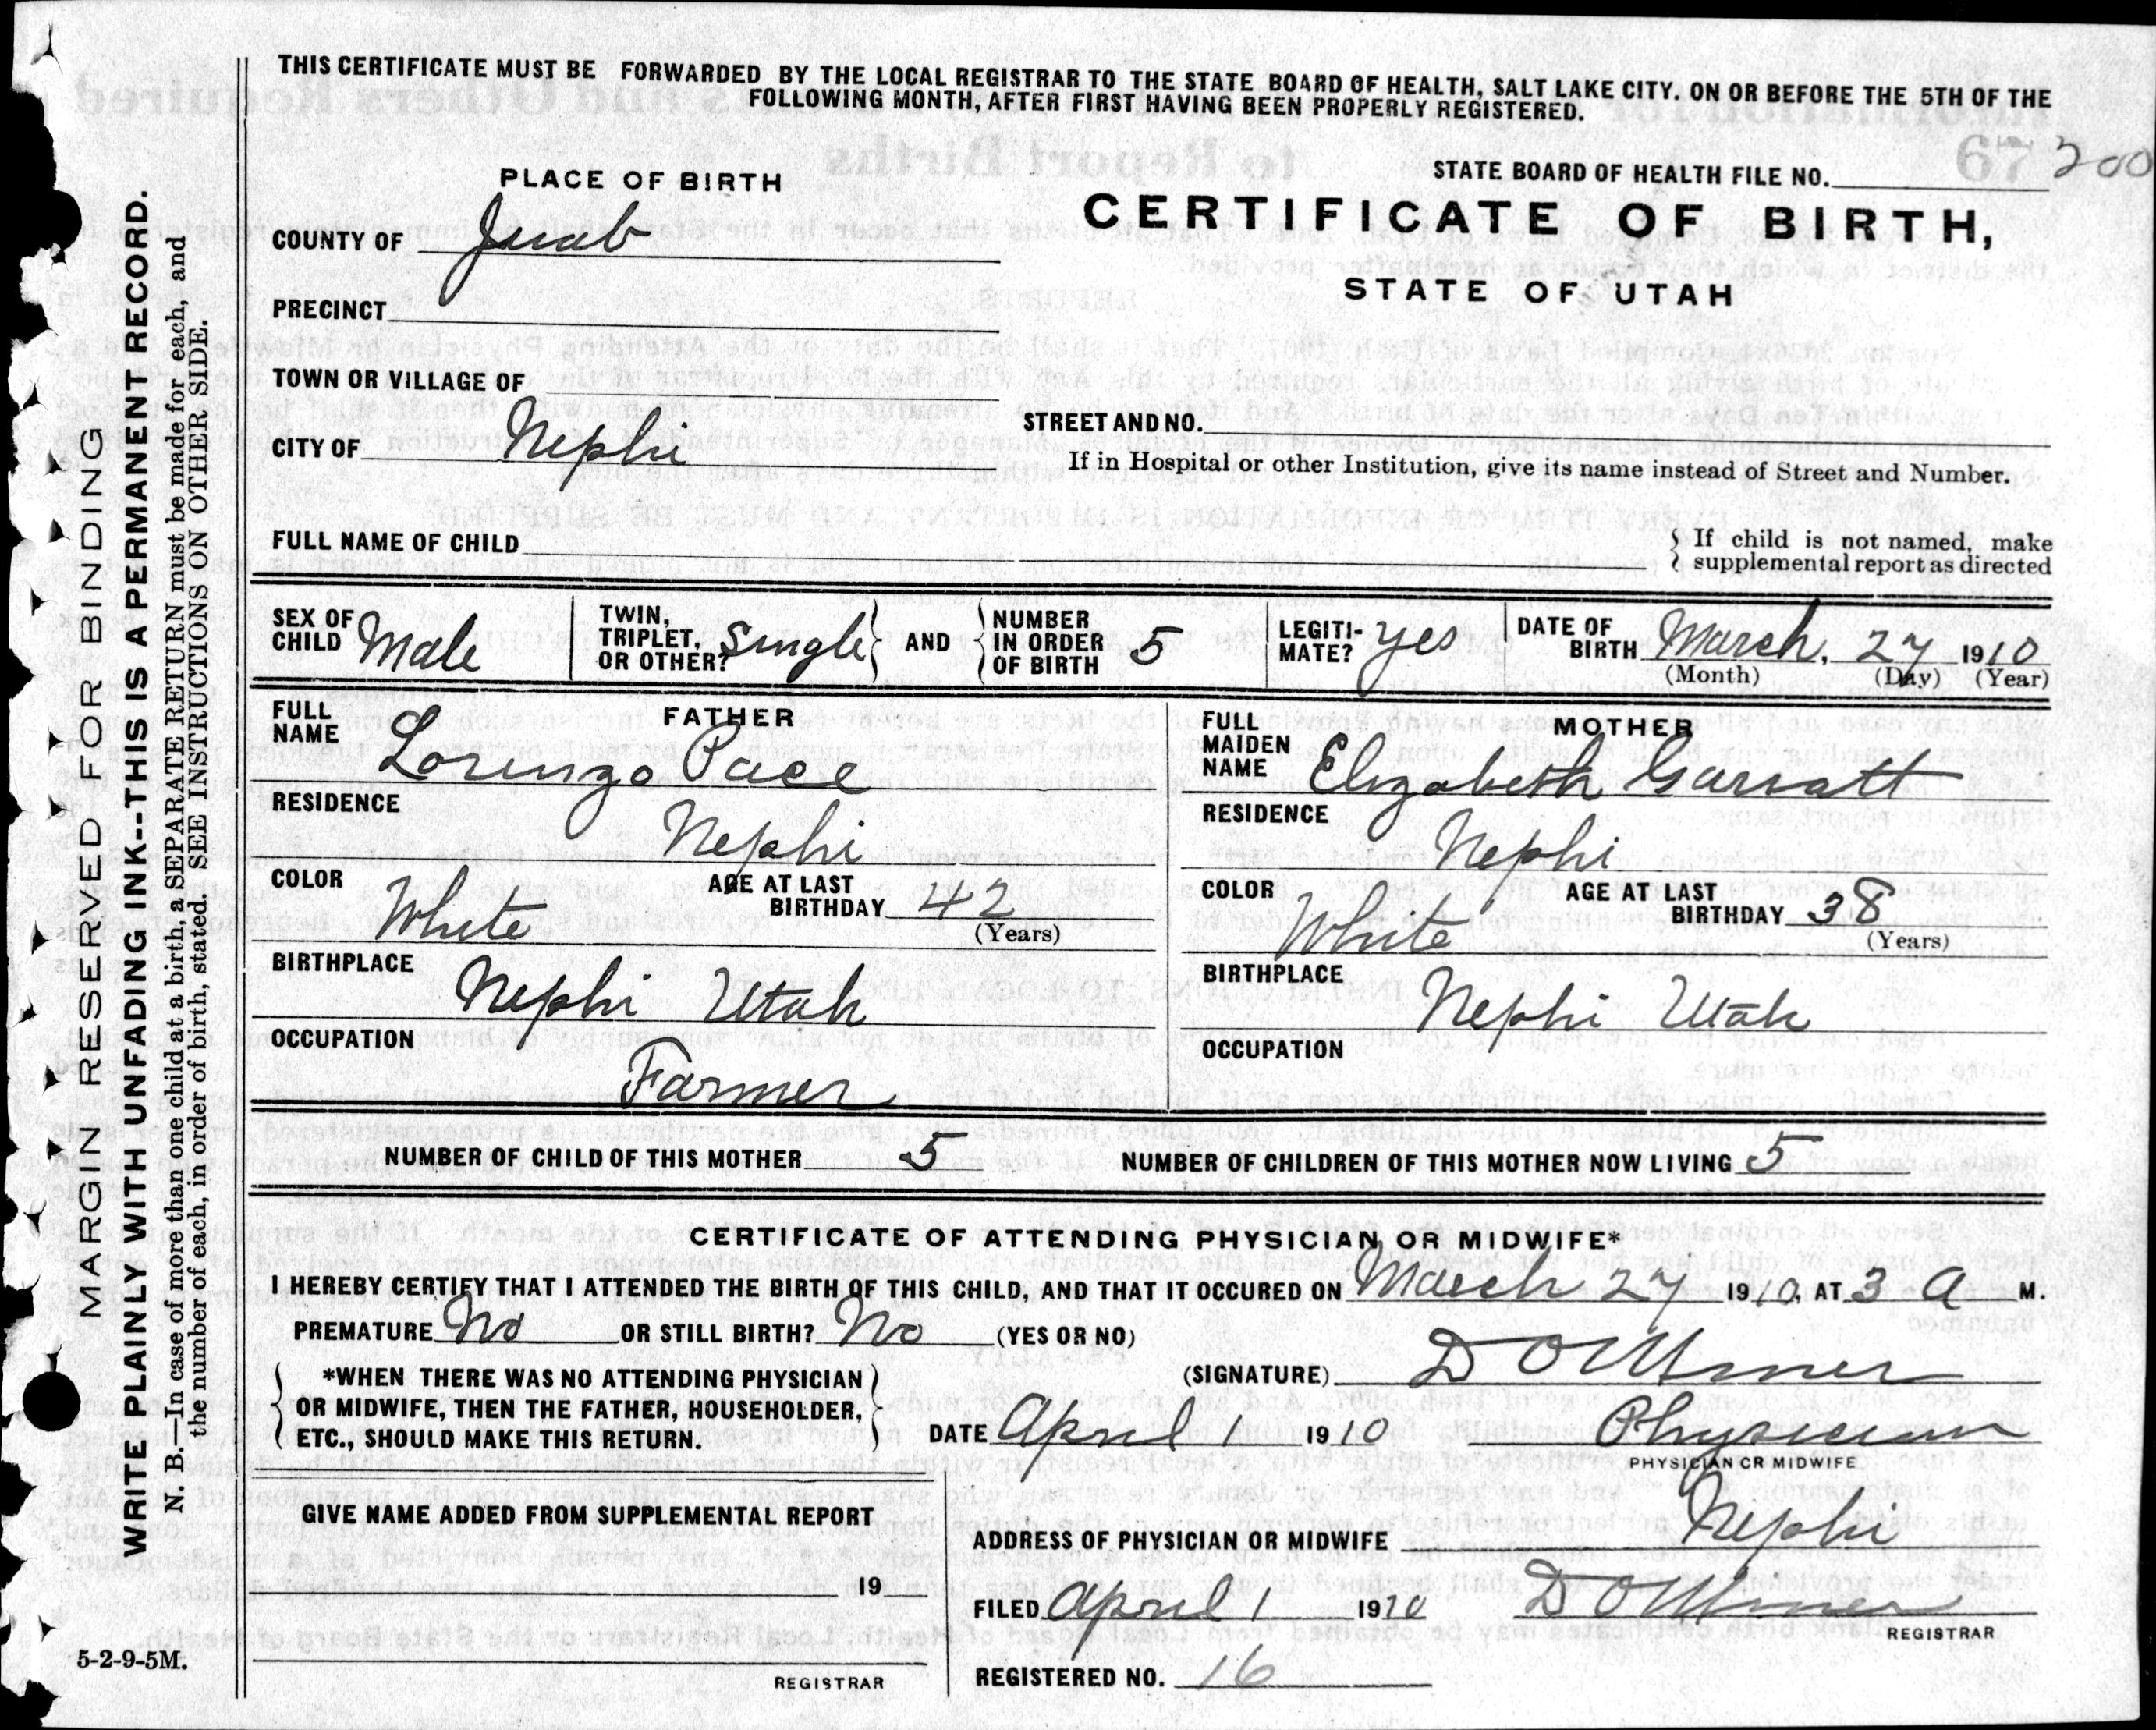 THIS CERTIFICATE MUST BE FORWARDED BY THE LOCAL REGISTRAR TO THE STATE BOARD OF HEALTH, SALT LAKE CITY. ON OR BEFORE THE 5TH OF THE
FOLLOWING MONTH, AFTER FIRST HAVING BEEN PROPERLY REGISTERED.
MARGIN RESERVED FOR BINDING
WRITE PLAINLY WITH UNFADING INK--THIS IS A PERMANENT RECORD.
N. B.—In case of more than one child at a birth, a SEPARATE RETURN must be made for each, and
the number of each, in order of birth, stated. SEE INSTRUCTIONS ON OTHER SIDE.
PLACE OF BIRTH
STATE BOARD OF HEALTH FILE NO. 67 200
CERTIFICATE OF BIRTH,
STATE OF UTAH
COUNTY OF Juab
PRECINCT
TOWN OR VILLAGE OF
CITY OF Nephi
STREET AND NO.
If in Hospital or other Institution, give its name instead of Street and Number.
FULL NAME OF CHILD
If child is not named, make
supplemental report as directed
SEX OF CHILD Male
TWIN, TRIPLET, OR OTHER? Single
AND
NUMBER IN ORDER OF BIRTH 5
LEGITI-MATE? yes
DATE OF BIRTH March, 27 1910
(Month) (Day) (Year)
FATHER
FULL NAME Lorenzo Pace
RESIDENCE
Nephi
COLOR White
AGE AT LAST BIRTHDAY 42
(Years)
BIRTHPLACE
Nephi Utah
OCCUPATION
Farmer
MOTHER
FULL MAIDEN NAME Elizabeth Garratt
RESIDENCE
Nephi
COLOR White
AGE AT LAST BIRTHDAY 38
(Years)
BIRTHPLACE
Nephi Utah
OCCUPATION
NUMBER OF CHILD OF THIS MOTHER 5
NUMBER OF CHILDREN OF THIS MOTHER NOW LIVING 5
CERTIFICATE OF ATTENDING PHYSICIAN OR MIDWIFE*
I HEREBY CERTIFY THAT I ATTENDED THE BIRTH OF THIS CHILD, AND THAT IT OCCURED ON March 27 1910, AT 3 A M.
PREMATURE No OR STILL BIRTH? No (YES OR NO)
*WHEN THERE WAS NO ATTENDING PHYSICIAN
OR MIDWIFE, THEN THE FATHER, HOUSEHOLDER,
ETC., SHOULD MAKE THIS RETURN.
(SIGNATURE) D O Miner
DATE April 1 1910
Physician
PHYSICIAN OR MIDWIFE
GIVE NAME ADDED FROM SUPPLEMENTAL REPORT
19
REGISTRAR
ADDRESS OF PHYSICIAN OR MIDWIFE Nephi
FILED April 1 1910 D O Miner
REGISTRAR
REGISTERED NO. 16
5-2-9-5M.